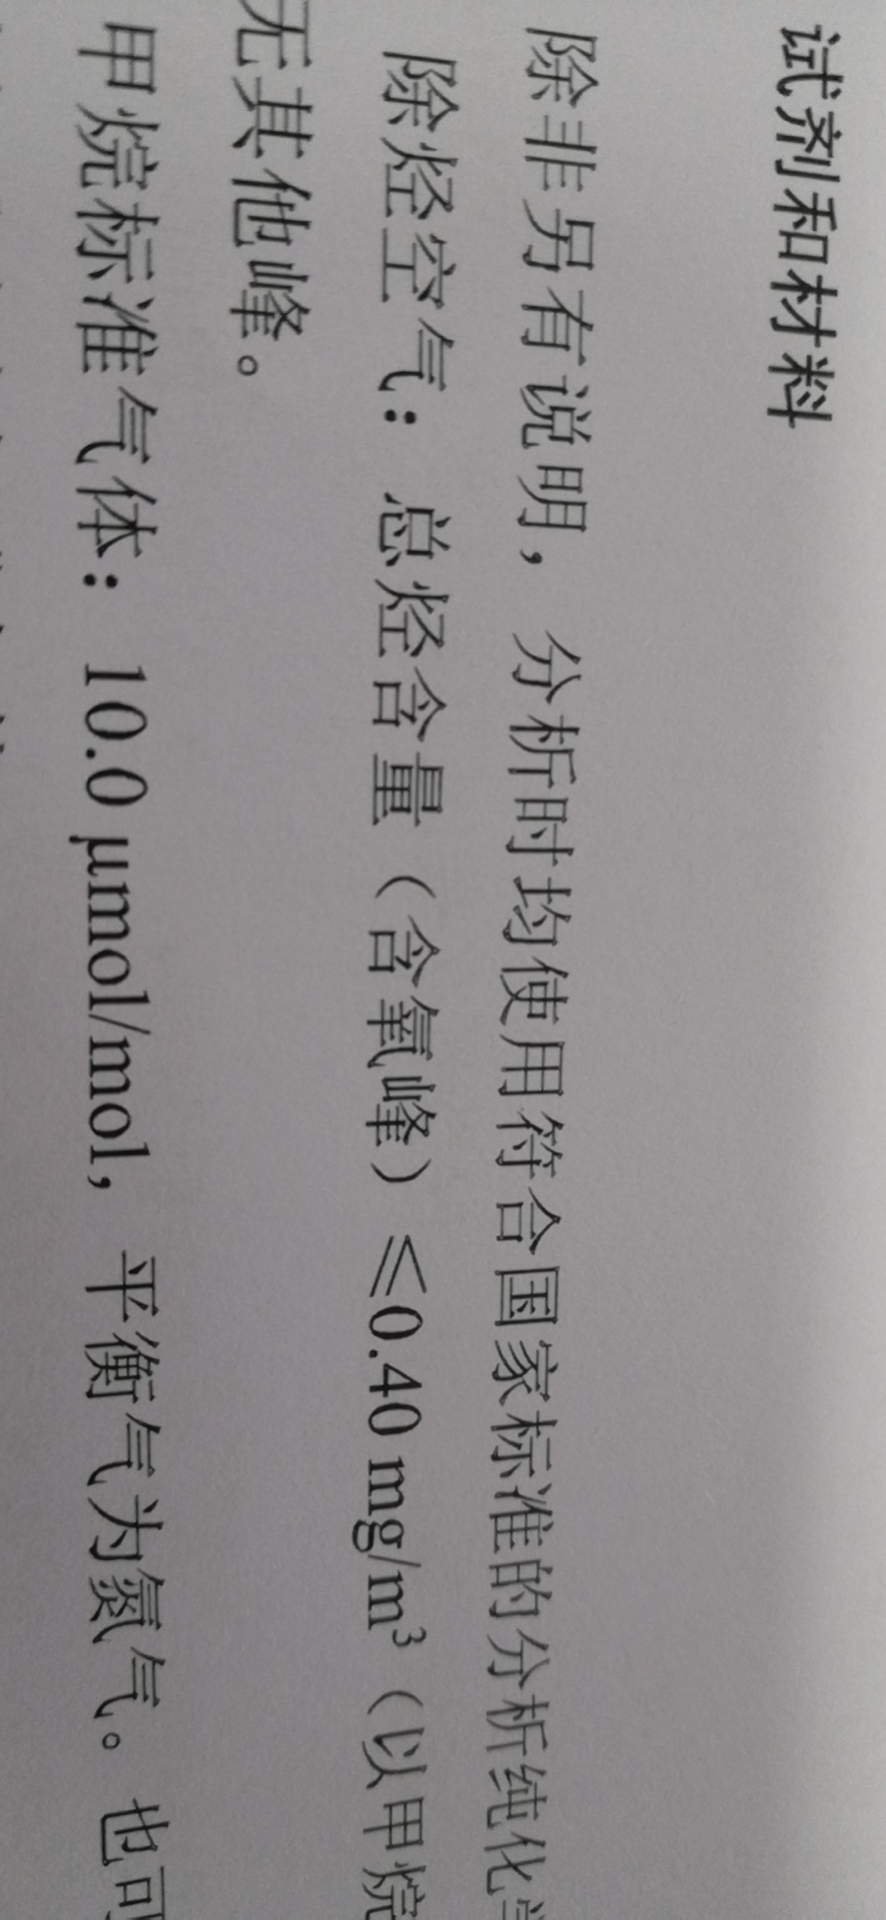 试剂和材料
除非另有说明，分析时均使用符合国家标准的分析纯化
除烃空气：总烃含量（含氧峰）≤0.40 mg/m³（以甲烷
无其他峰。
甲烷标准气体：10.0 μmol/mol，平衡气为氮气。也可